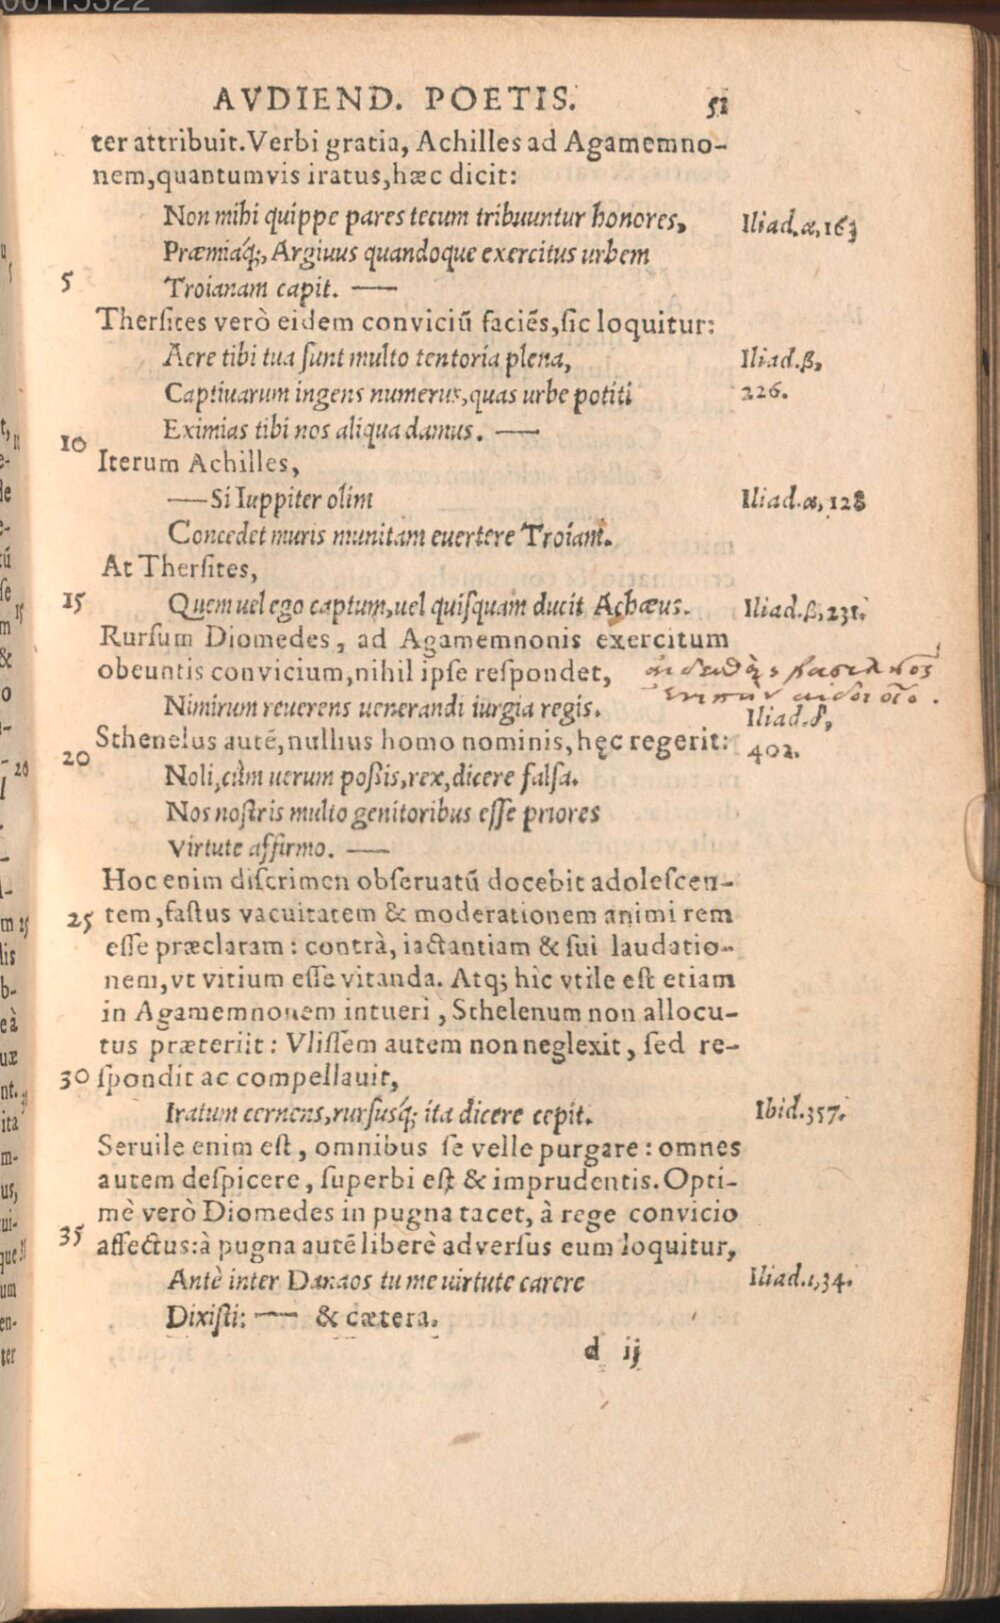 00115322
AVDIEND. POETIS. 51
ter attribuit. Verbi gratia, Achilles ad Agamemno-
nem, quantumvis iratus, hæc dicit:
Non mihi quippe pares tecum tribuuntur honores, Iliad.α,163
Præmiáq;, Argiuus quandoque exercitus urbem
5 Troianam capit. —
Thersites verò eidem conviciū faciēs, sic loquitur:
Aere tibi tua sunt multo tentoria plena, Iliad.β,
Captiuarum ingens numerus, quas urbe potiti 226.
Eximias tibi nos aliqua damus. —
10 Iterum Achilles,
— Si Iuppiter olim Iliad.α, 128
Concedet muris munitam euertere Troiam.
At Thersites,
15 Quem uel ego captum, uel quisquam ducit Achæus. Iliad.β,231.
Rursum Diomedes, ad Agamemnonis exercitum
obeuntis convicium, nihil ipse respondet, αἰδεσθεὶς βασιλῆος
ἐνιπὴν αἰδοίοιο.
Nimirum reuerens uenerandi iurgia regis. Iliad.δ,
Sthenelus autē, nullius homo nominis, hęc regerit: 402.
20 Noli, cùm uerum poßis, rex, dicere falsa.
Nos nostris multo genitoribus esse priores
Virtute affirmo. —
Hoc enim discrimen observatū docebit adolescen-
25 tem, fastus vacuitatem & moderationem animi rem
esse præclaram: contrà, iactantiam & sui laudatio-
nem, vt vitium esse vitanda. Atq; hîc vtile est etiam
in Agamemnonem intueri, Sthelenum non allocu-
tus præteriit: Vlissem autem non neglexit, sed re-
30 spondit ac compellavit,
Iratum cernens, rursusq́; ita dicere cepit. Ibid.357.
Seruile enim est, omnibus se velle purgare: omnes
autem despicere, superbi est & imprudentis. Opti-
mè verò Diomedes in pugna tacet, à rege convicio
35 affectus: à pugna autē liberè adversus eum loquitur,
Antè inter Danaos tu me uirtute carere Iliad.ι,34.
Dixisti: — & cætera.
d ij